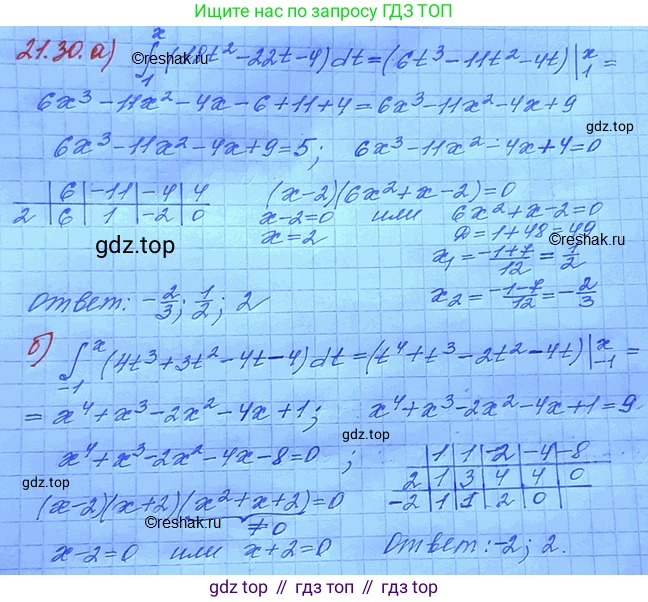 Ищите нас по запросу ГДЗ ТОП
21.30. а) ∫₁ˣ (18t² - 22t - 4) dt = (6t³ - 11t² - 4t) |₁ˣ =
©reshak.ru
6x³ - 11x² - 4x - 6 + 11 + 4 = 6x³ - 11x² - 4x + 9
6x³ - 11x² - 4x + 9 = 5; 6x³ - 11x² - 4x + 4 = 0
gdz.top
| 6 | -11 | -4 | 4
2 | 6 | 1 | -2 | 0
(x-2)(6x² + x - 2) = 0
x - 2 = 0 или 6x² + x - 2 = 0
x = 2
D = 1 + 48 = 49
©reshak.ru
gdz.top
x₁ = (-1+7)/12 = 1/2
x₂ = (-1-7)/12 = -2/3
Ответ: -2/3; 1/2; 2
б) ∫₋₁ˣ (4t³ + 3t² - 4t - 4) dt = (t⁴ + t³ - 2t² - 4t) |₋₁ˣ =
= x⁴ + x³ - 2x² - 4x + 1; x⁴ + x³ - 2x² - 4x + 1 = 9
gdz.top
x⁴ + x³ - 2x² - 4x - 8 = 0;
gdz.top
| 1 | 1 | -2 | -4 | -8
2 | 1 | 3 | 4 | 4 | 0
-2 | 1 | 1 | 2 | 0
(x-2)(x+2)(x² + x + 2) = 0
≠0
©reshak.ru
x - 2 = 0 или x + 2 = 0 Ответ: -2; 2.
gdz.top // гдз.топ // gdz.top // гдз.топ